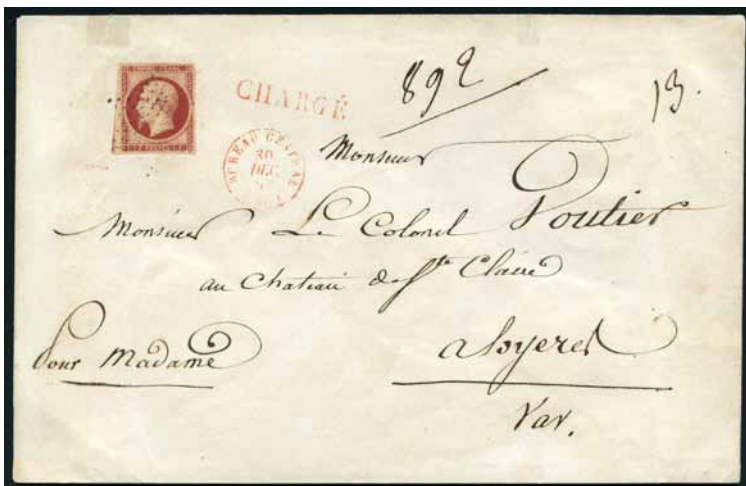 EMPIRE FRANC
1 F POSTES 1 F
CHARGÉ
892
13.
BUREAU GENERAL
30
DEC.
Monsieur
Monsieur Le Colonel Poutier
au Chateau de Ste Claire
Pour Madame
a hyeres
Var.